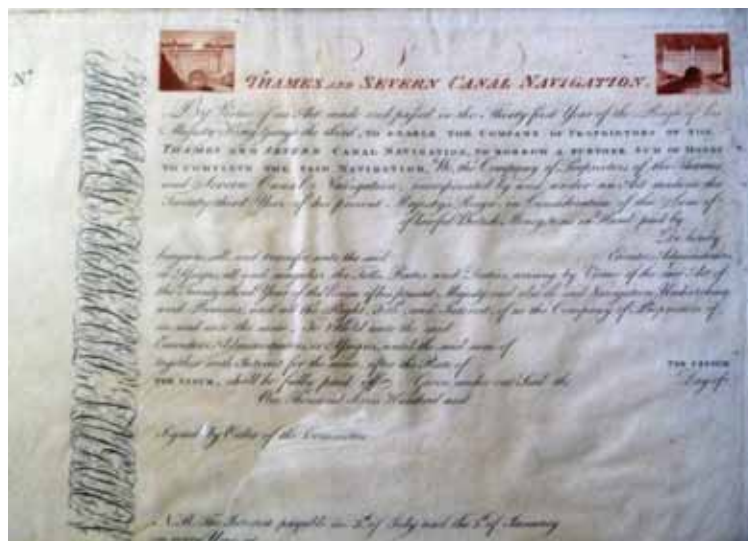 Nº
THAMES AND SEVERN CANAL NAVIGATION.
By Virtue of an Act made and passed in the Thirty first Year of the Reign of his
Majesty King George the third, TO ENABLE THE COMPANY OF PROPRIETORS OF THE
THAMES AND SEVERN CANAL NAVIGATION, TO BORROW A FURTHER SUM OF MONEY
TO COMPLETE THE SAID NAVIGATION, We, the Company of Proprietors of the Thames
and Severn Canal Navigation, incorporated by and under an Act made in the
Twenty third Year of his present Majesty's Reign, in Consideration of the Sum of
of lawful Money in Hand paid by
Do hereby
bargain, sell, and transfer unto the said
of the Tolls, Rates and Duties, arising by Virtue of the said Act of
the Twenty third Year of the Reign of his present Majesty and also
and all the Right, Title, and Interest, of us the Company of Proprietors of,
in and unto the same, To Hold unto the said
Executors Administrators or Assigns, until the said sum of
together with Interest for the same after the Rate of PER CENTUM
PER ANNUM, shall be fully paid off. Given under our Seal the Day of
One Thousand Seven Hundred and
Signed by Order of the Committee
N.B. The Interest payable on of July and the of January